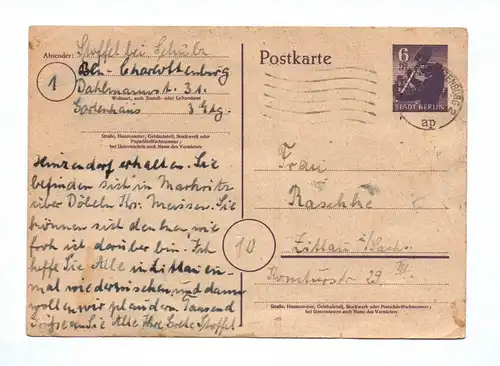 Absender: Stoffel bei Schulz
Bln - Charlottenburg
1
Dahlmannstr. 31.
Wohnort, auch Zustell- oder Leitpostamt
Gartenhaus 3 Etg.
Straße, Hausnummer, Gebäudeteil, Stockwerk oder
Postschließfachnummer;
bei Untermietern auch Name des Vermieters
Hinzendorf erhalten. Sie
befinden sich in Markritz
über Döbeln Kr. Meissen. Sie
können sich denken wie
froh ich darüber bin. Ich
hoffe Sie Alle in Zittau ein-
mal wiederzusehen und dann
wollen wir plaudern. Tausend
Grüße an Sie Alle Ihre Grete Stoffel
Postkarte
6
STADT BERLIN
ap
Frau
Raschke
10
Zittau i/Sach.
Komturstr 29 III
Straße, Hausnummer, Gebäudeteil, Stockwerk oder Postschließfachnummer;
bei Untermietern auch Name des Vermieters